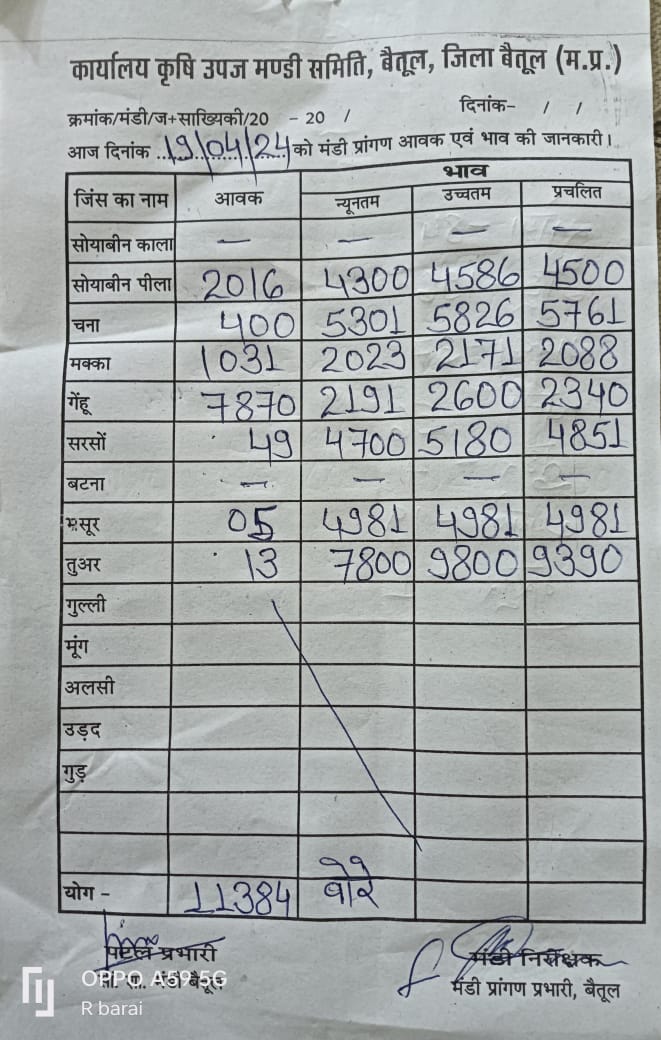 कार्यालय कृषि उपज मण्डी समिति, बैतूल, जिला बैतूल (म.प्र.)
क्रमांक/मंडी/ज+साख्यिकी/20 - 20 / दिनांक- / /
आज दिनांक 19/04/24 को मंडी प्रांगण आवक एवं भाव की जानकारी।
जिंस का नाम आवक भाव
न्यूनतम उच्चतम प्रचलित
सोयाबीन काला — — — —
सोयाबीन पीला 2016 4300 4586 4500
चना 400 5301 5826 5761
मक्का 1031 2023 2171 2088
गेंहू 7870 2191 2600 2340
सरसों 49 4700 5180 4851
बटना — — — —
मसूर 05 4981 4981 4981
तुअर 13 7800 9800 9390
गुल्ली
मूंग
अलसी
उड़द
गुड़
योग - 11384 बोरे
प्रभारी मंडी निरीक्षक
मंडी बैतूल मंडी प्रांगण प्रभारी, बैतूल
OPPO A59 5G
R barai